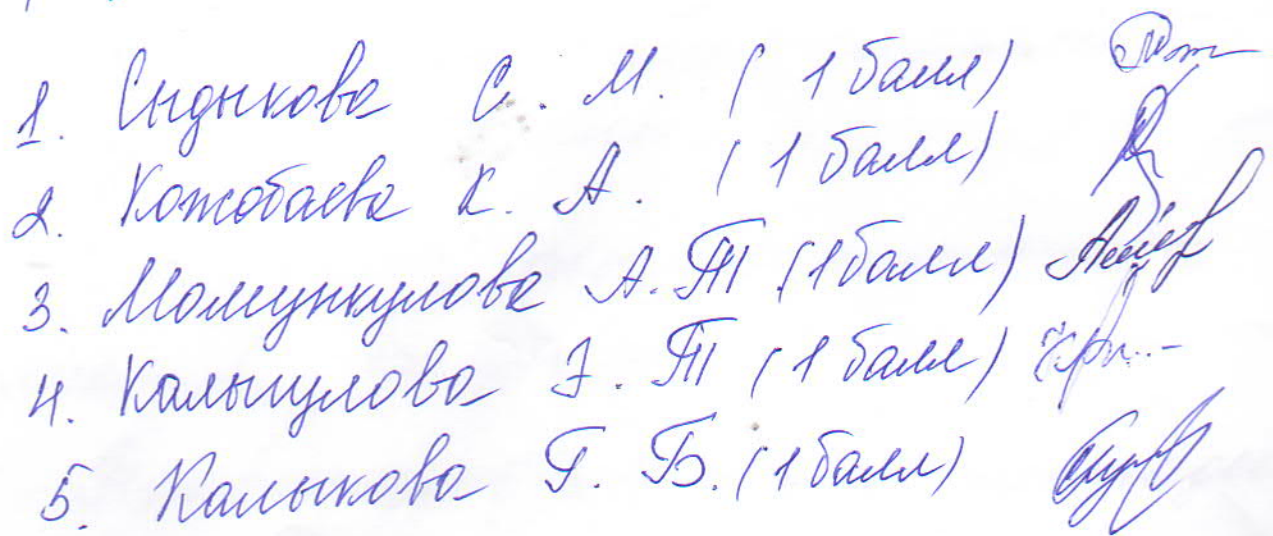 1. Сыдыкова С. М. (1 балл)
2. Кожобаева К. А. (1 балл)
3. Момункулова А. Т (1 балл)
4. Калыгулова З. Т (1 балл)
5. Калыкова Г. Б. (1 балл)